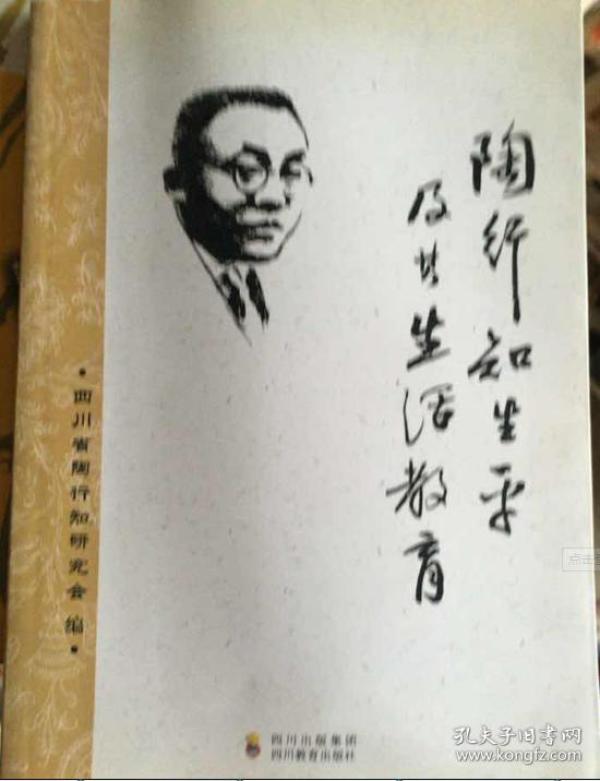 陶行知生平
及其生活教育
四川省陶行知研究会 编
四川出版集团
四川教育出版社
点击
孔夫子旧书网
www.kongfz.com